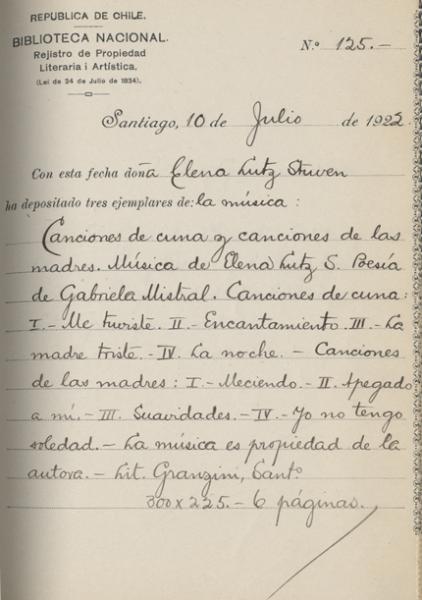 REPUBLICA DE CHILE.
BIBLIOTECA NACIONAL.
Rejistro de Propiedad
Literaria i Artística.
(Lei de 24 de Julio de 1834).
N.º 125.-
Santiago, 10 de Julio de 1922
Con esta fecha doña Elena Lutz Stuven
ha depositado tres ejemplares de: la música :
Canciones de cuna y canciones de las
madres. Música de Elena Lutz S. Poesía
de Gabriela Mistral. Canciones de cuna:
I.- Me tuviste. II.- Encantamiento. III.- La
madre triste.- IV. La noche. - Canciones
de las madres : I.- Meciendo.- II. Apegado
a mí.- III. Suavidades.- IV.- Yo no tengo
soledad.- La música es propiedad de la
autora.- Lit. Granzini, Santº
300 x 225.- 6 páginas.